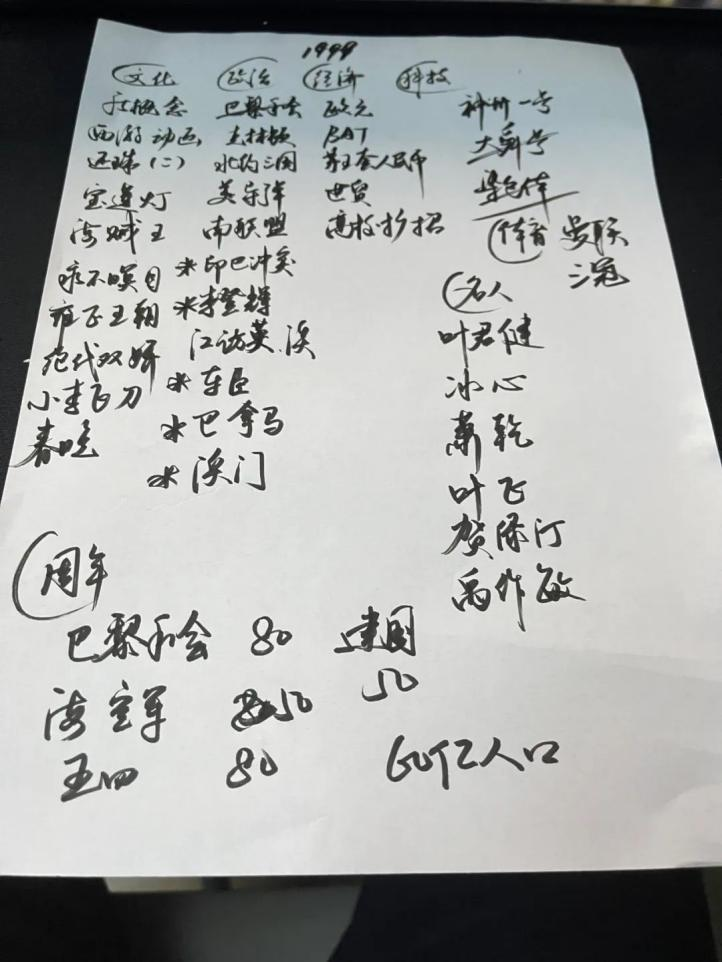 1999
文化 政治 经济 科技
新概念 巴黎和会 欧元 神州一号
西游 动画 克林顿 BAT 大舜号
还珠(二) 北约三国 第五套人民币
宝莲灯 美导洋 世贸
海贼王 南联盟 高校扩招 体育 曼联
三冠
永不瞑目 *印巴冲突 名人
雍正王朝 *李登辉 叶君健
绝代双娇 江访英、澳 冰心
小李飞刀 *车臣 萧乾
春晚 *巴拿马 叶飞
*澳门 贺绿汀
禹作敏
周年
巴黎和会 80 建国
海空军 50 50
五四 80 60亿人口